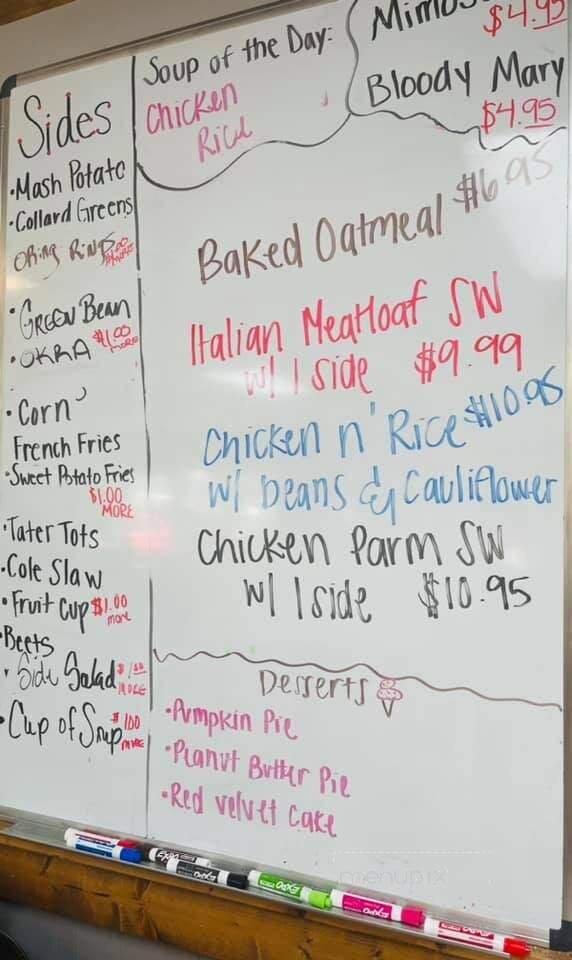 Sides
•Mash Potato
•Collard Greens
Oring Rings $1.00 more
•Green Bean
•OKRA $1.00 more
•Corn
French Fries
•Sweet Potato Fries
$1.00
MORE
•Tater Tots
•Cole Slaw
•Fruit Cup $1.00 more
•Beets
•Side Salad $1.00 MORE
•Cup of Soup $1.00 more
Soup of the Day:
Chicken
Rice
$4.95
Bloody Mary
$4.95
Baked Oatmeal $6.95
Italian Meatloaf SW
w/ 1 side $9.99
Chicken n' Rice $10.95
w/ beans & Cauliflower
Chicken Parm SW
w/ 1 side $10.95
Desserts
•Pumpkin Pie
•Peanut Butter Pie
•Red velvet Cake
EXPO
EXPO
EXPO
EXPO
EXPO
menupix